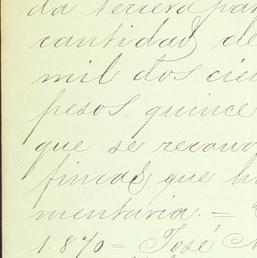 da tercera par
cantidad de
mil dos cien
pesos, quince
que se recono
fincas, que h
mentaria. =
1.870 = José